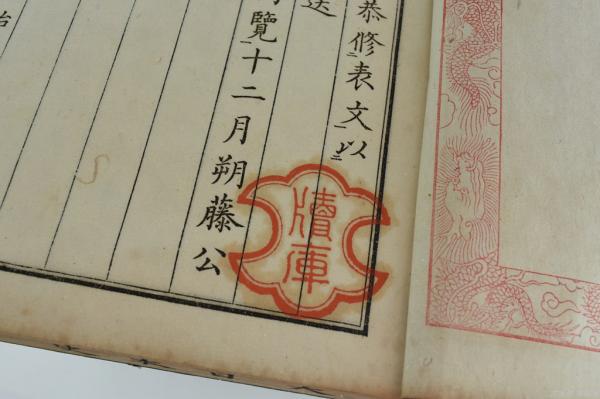 恭修表文以
送
覽十二月朔藤公
牘庫